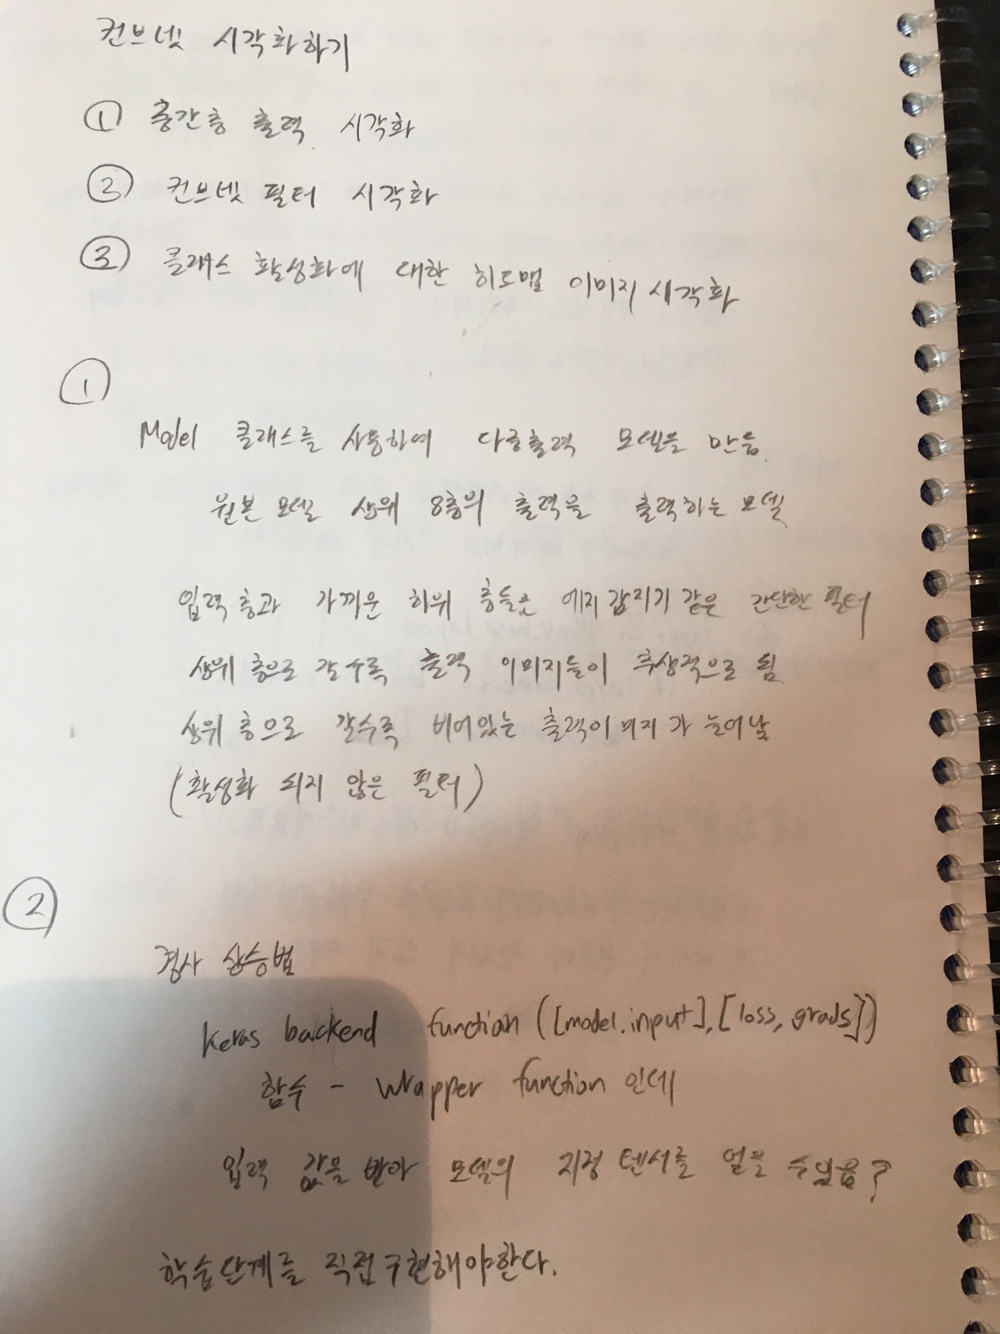 컨브넷 시각화하기
① 중간층 출력 시각화
② 컨브넷 필터 시각화
③ 클래스 활성화에 대한 히트맵 이미지 시각화
①
Model 클래스를 사용하여 다중출력 모델을 만듬.
원본 모델 상위 8층의 출력을 출력하는 모델
입력 층과 가까운 하위 층들은 에지 감지기 같은 간단한 필터
상위 층으로 갈수록 출력 이미지들이 추상적으로 됨
상위 층으로 갈수록 비어있는 출력이미지가 늘어남
(활성화 되지 않은 필터)
②
경사 상승법
Keras backend function ([model.input], [loss, grads])
함수 - wrapper function 인데
입력 값을 받아 모델의 지정 텐서를 얻을 수 있음?
학습단계를 직접구현해야한다.